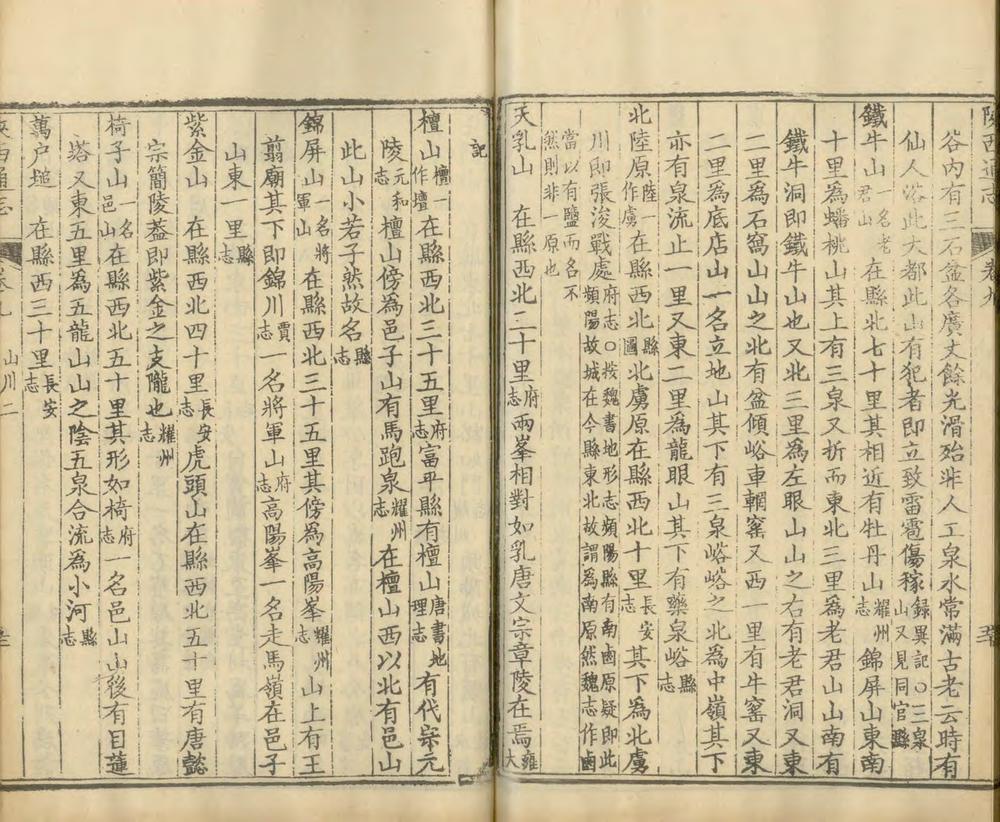 陝西通志 卷九
谷內有三石盆各廣丈餘光滑殆非人工泉水常滿古老云時有
仙人浴此大都此山有犯者即立致雷雹傷稼錄異記〇三泉山又見同官縣
鐵牛山一名老君山在縣北七十里其相近有牡丹山耀州志錦屏山東南
十里為蟠桃山其上有三泉又折而東北三里為老君山山南有
鐵牛洞即鐵牛山也又北三里為左眼山山之右有老君洞又東
二里為石窩山山之北有盆傾峪車輞窰又西一里有牛窰又東
二里為底店山一名立地山其下有三泉峪峪之北為中嶺其下
亦有泉流止一里又東二里為龍眼山其下有藥泉峪縣志
北陸原陸一作虜在縣西北縣圖北虜原在縣西北十里長安志其下為北虜
川即張浚戰處府志〇按魏書地形志頻陽縣有南鹵原疑即此頻陽故城在今縣東北故謂為南原然魏志作鹵
當以有鹽而名不然則非一原也
天乳山 在縣西北三十里府志兩峯相對如乳唐文宗章陵在焉雍大
記
檀山檀一作壇在縣西北三十五里府志富平縣有檀山唐書地理志有代宗元
陵元和志檀山傍為邑子山有馬跑泉耀州志在檀山西以北有邑山
此山小若子然故名縣志
錦屏山一名將軍山在縣西北三十五里其傍為高陽峯耀州志山上有王
翦廟其下即錦川賈志一名將軍山府志高陽峯一名走馬嶺在邑子
山東一里縣志
紫金山 在縣西北四十里長安志虎頭山在縣西北五十里有唐懿
宗簡陵葢即紫金之支隴也耀州志
椅子山一名邑山在縣西北五十里其形如椅府志一名邑山山後有目蓮
塔又東五里為五龍山山之陰五泉合流為小河縣志
萬户堆 在縣西三十里長安志
陝西通志 卷九 山川二